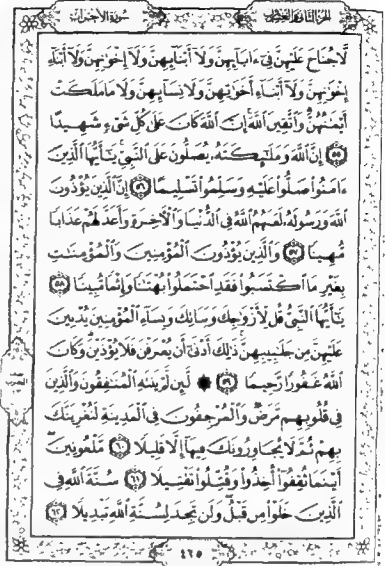 الجزء الثاني والعشرون سورة الأحزاب
لَّا جُنَاحَ عَلَيْهِنَّ فِىٓ ءَابَآئِهِنَّ وَلَآ أَبْنَآئِهِنَّ وَلَآ إِخْوَٰنِهِنَّ وَلَآ أَبْنَآءِ
إِخْوَٰنِهِنَّ وَلَآ أَبْنَآءِ أَخَوَٰتِهِنَّ وَلَا نِسَآئِهِنَّ وَلَا مَا مَلَكَتْ
أَيْمَٰنُهُنَّ وَٱتَّقِينَ ٱللَّهَ إِنَّ ٱللَّهَ كَانَ عَلَىٰ كُلِّ شَىْءٍ شَهِيدًا
٥٥ إِنَّ ٱللَّهَ وَمَلَٰٓئِكَتَهُۥ يُصَلُّونَ عَلَى ٱلنَّبِىِّ يَٰٓأَيُّهَا ٱلَّذِينَ
ءَامَنُوا۟ صَلُّوا۟ عَلَيْهِ وَسَلِّمُوا۟ تَسْلِيمًا ٥٦ إِنَّ ٱلَّذِينَ يُؤْذُونَ
ٱللَّهَ وَرَسُولَهُۥ لَعَنَهُمُ ٱللَّهُ فِى ٱلدُّنْيَا وَٱلْءَاخِرَةِ وَأَعَدَّ لَهُمْ عَذَابًا
مُّهِينًا ٥٧ وَٱلَّذِينَ يُؤْذُونَ ٱلْمُؤْمِنِينَ وَٱلْمُؤْمِنَٰتِ
بِغَيْرِ مَا ٱكْتَسَبُوا۟ فَقَدِ ٱحْتَمَلُوا۟ بُهْتَٰنًا وَإِثْمًا مُّبِينًا ٥٨
يَٰٓأَيُّهَا ٱلنَّبِىُّ قُل لِّأَزْوَٰجِكَ وَبَنَاتِكَ وَنِسَآءِ ٱلْمُؤْمِنِينَ يُدْنِينَ
عَلَيْهِنَّ مِن جَلَٰبِيبِهِنَّ ذَٰلِكَ أَدْنَىٰٓ أَن يُعْرَفْنَ فَلَا يُؤْذَيْنَ وَكَانَ
ٱللَّهُ غَفُورًا رَّحِيمًا ٥٩ لَّئِن لَّمْ يَنتَهِ ٱلْمُنَٰفِقُونَ وَٱلَّذِينَ
فِى قُلُوبِهِم مَّرَضٌ وَٱلْمُرْجِفُونَ فِى ٱلْمَدِينَةِ لَنُغْرِيَنَّكَ
بِهِمْ ثُمَّ لَا يُجَاوِرُونَكَ فِيهَآ إِلَّا قَلِيلًا ٦٠ مَّلْعُونِينَ
أَيْنَمَا ثُقِفُوٓا۟ أُخِذُوا۟ وَقُتِّلُوا۟ تَقْتِيلًا ٦١ سُنَّةَ ٱللَّهِ فِى
ٱلَّذِينَ خَلَوْا۟ مِن قَبْلُ وَلَن تَجِدَ لِسُنَّةِ ٱللَّهِ تَبْدِيلًا ٦٢
٤٢٥